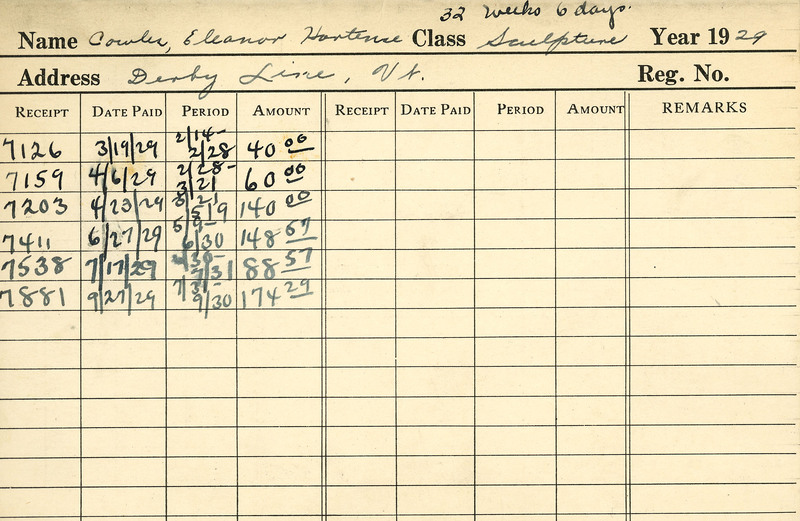 32 weeks 6 days.
Name Cowles, Eleanor Hortense Class Sculpture Year 1929
Address Derby Line, Vt. Reg. No.
RECEIPT DATE PAID PERIOD AMOUNT RECEIPT DATE PAID PERIOD AMOUNT REMARKS
7126 3/19/29 2/14- 2/28 40 00
7159 4/6/29 2/28- 3/21 60 00
7203 4/23/29 3/21 5/9 140 00
7411 6/27/29 5/9- 6/30 148 57
7538 7/17/29 6/30- 7/31 88 57
7881 9/27/29 7/31- 9/30 174 29